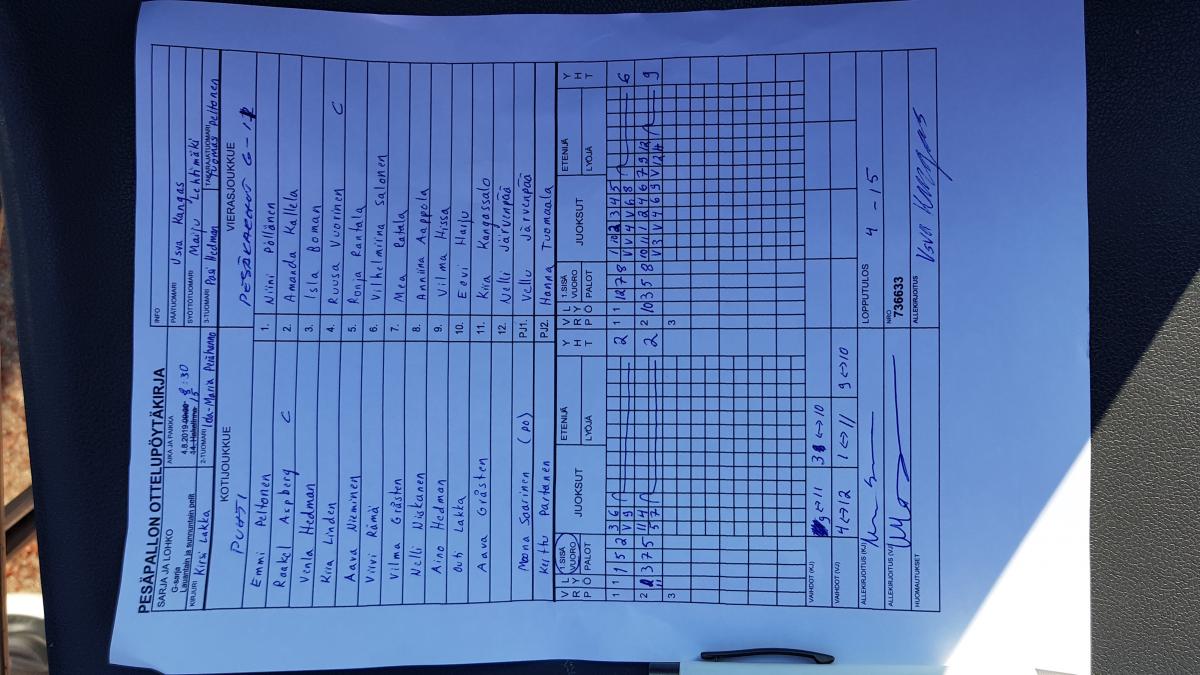 PESÄPALLON OTTELUPÖYTÄKIRJA
SARJA JA LOHKO
G-sarja
Lauantain ja sunnuntain pelit
AIKA JA PAIKKA
4.8.2019 8:30
15
INFO
PÄÄTUOMARI Usva Kangas
SYÖTTÖTUOMARI Maiju Lehtimäki
KIRJURI Kirsi Lakka
2-TUOMARI Ida-Maria Perähanno
3-TUOMARI Pasi Hedman
TAKARAJATUOMARI Tuomas Peltonen
KOTIJOUKKUE VIERASJOUKKUE
PuMSi PESÄKARHUT G-1
Emmi Peltonen 1. Niini Pöllänen
Raakel Aspberg C 2. Amanda Kallela
Venla Hedman 3. Isla Boman
Kiia Linden 4. Ruusa Vuorinen C
Aava Nieminen 5. Ronja Rantala
Viivi Rämä 6. Vilhelmiina Salonen
Vilma Gråsten 7. Mea Ratala
Nelli Niskanen 8. Anniina Aappola
Aino Hedman 9. Vilma Hissa
Outi Lakka 10. Eevi Harju
Aava Gråsten 11. Kiia Kangassalo
12. Nelli Järvenpää
Moona Soarinen (po) PJ1. Vellu Järvenpää
Kerttu Partanen PJ2. Hanna Tuomaala
V R L Y P Ö 1.SISÄ VUORO PALOT JUOKSUT ETENIJÄ LYÖJÄ Y H T V R L Y P Ö 1.SISÄ VUORO PALOT JUOKSUT ETENIJÄ LYÖJÄ Y H T
1 1 1 5 2 3 6 2 1 1 12 7 8 1 10 2 3 4 5 6
V 9 V V 4 V 6 8
2 3 7 5 11 4 2 2 10 3 5 8 10 11 1 2 4 6 7 9 12 9
5 7 V 3 V 4 6 9 V 12 11
3 3
VAIHDOT (KJ) 9 <-> 11 3 <-> 10
VAIHDOT (VJ) 4 <-> 12 1 <-> 11 9 <-> 10
ALLEKIRJOITUS (KJ) LOPPUTULOS 4 - 15
ALLEKIRJOITUS (VJ) NRO
736633
HUOMAUTUKSET ALLEKIRJOITUS Usva Kangas